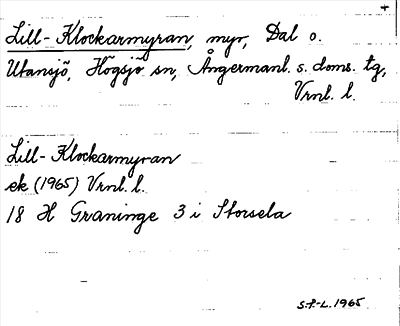 +
Lill-Klockarmyran, myr, Dal o.
Utansjö, Högsjö sn, Ångermanl. s. doms. tg,
Vrnl. l.
Lill-Klockarmyran
ek (1965) Vrnl. l.
18 H Graninge 3 i Storsela
S.P-L. 1965